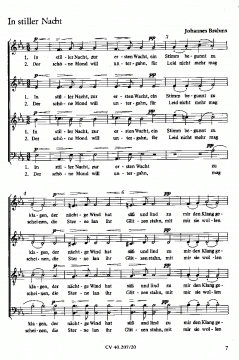 In stiller Nacht
Johannes Brahms
1. In stil- ler Nacht, zur er- sten Wacht, ein Stimm begunnt zu
2. Der schö- ne Mond will un- ter- gahn, für Leid nicht mehr mag
1. In stil- ler Nacht, zur er- sten Wacht, ein Stimm begunnt zu
2. Der schö- ne Mond will un- ter- gahn, für Leid nicht mehr mag
1. In stil- ler Nacht, zur er- sten Wacht, ein Stimm begunnt zu
2. Der schö- ne Mond will un- ter- gahn, für Leid nicht mehr mag
1. In stil- ler Nacht, zur er- sten Wacht zu
2. Der schö- ne Mond will un- ter- gahn, mag
kla- gen, der nächt- ge Wind hat süß und lind zu mir den Klang ge-
schei- nen, die Ster- ne lan ihr Glit- zen stahn, mit mir sie wol- len
kla- gen, der nächt- ge Wind hat süß und lind zu mir den Klang ge-
schei- nen, die Ster- ne lan ihr Glit- zen stahn, mit mir sie wol- len
kla- gen, der nächt- ge Wind hat süß und lind zu mir den Klang ge-
schei- nen, die Ster- ne lan ihr Glit- zen stahn, mit mir sie wol- len
kla- gen, der nächt- ge Wind hat süß und lind zu mir den Klang ge-
schei- nen, die Ster- ne lan ihr Glit- zen stahn, mit mir sie wol- len
CV 40.207/20
7